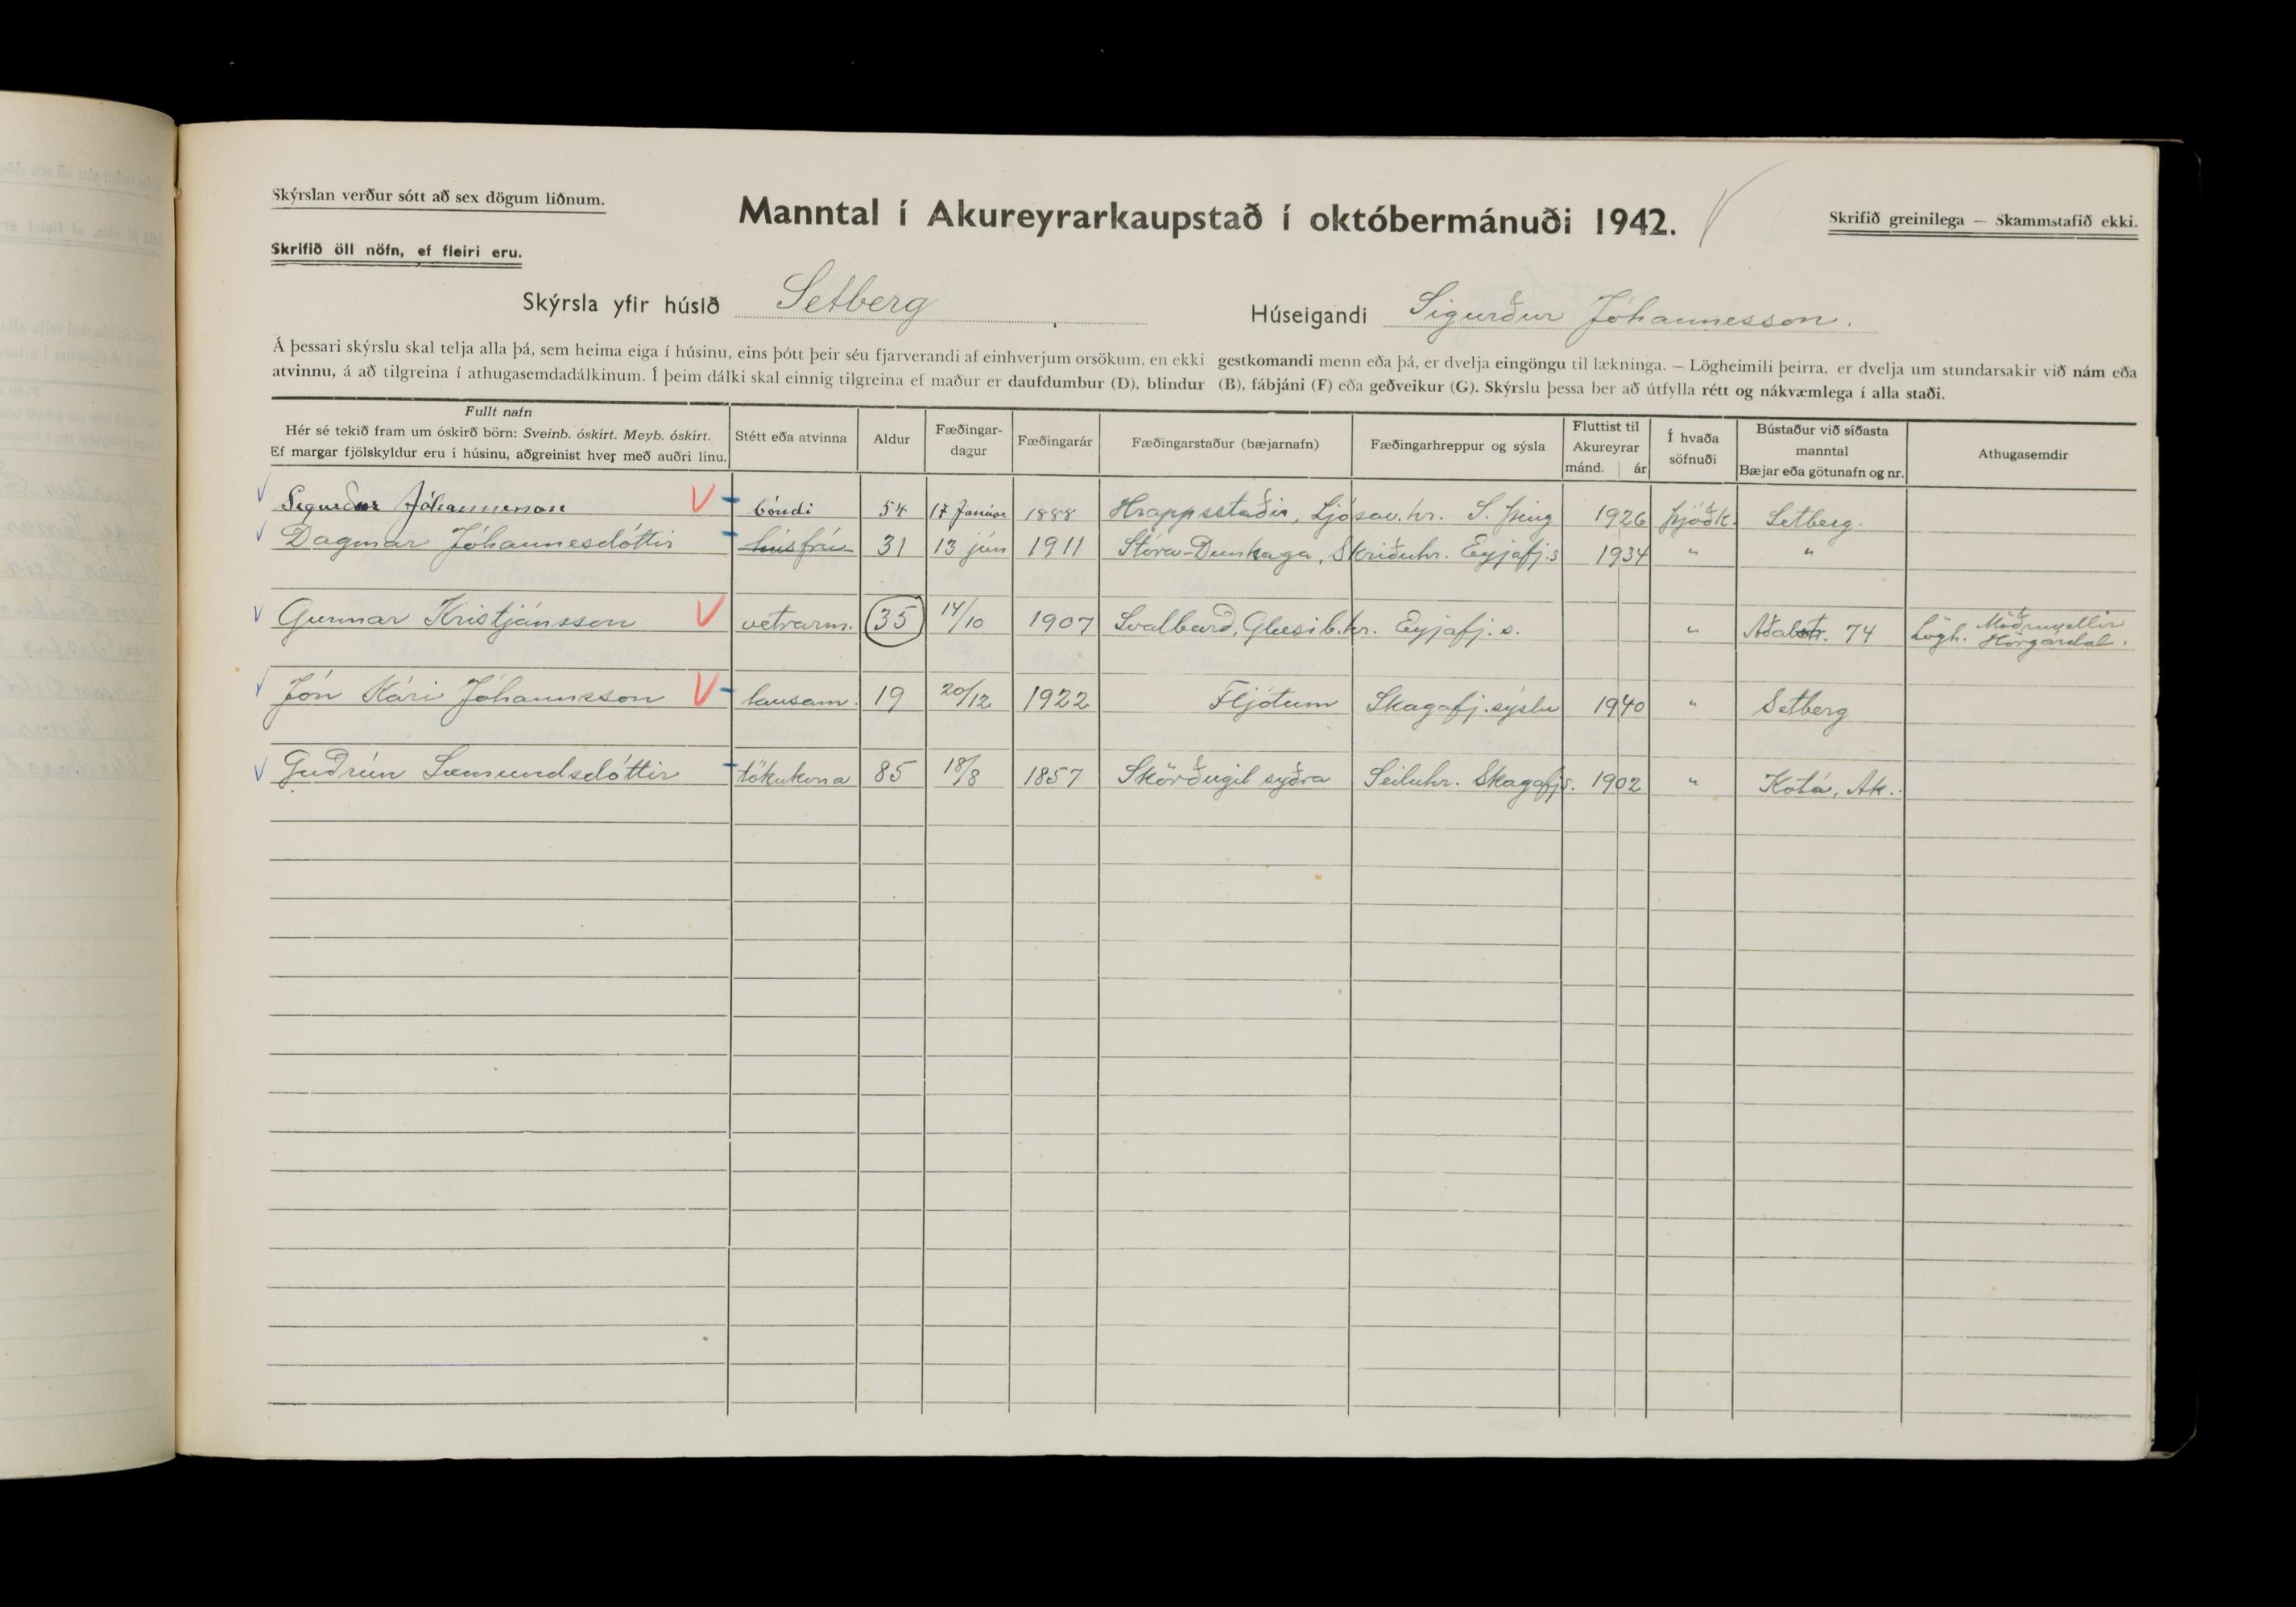 Skýrslan verður sótt að sex dögum liðnum.
Manntal í Akureyrarkaupstað í októbermánuði 1942.
Skrifið greinilega — Skammstafið ekki.
Skrifið öll nöfn, ef fleiri eru.
Skýrsla yfir húsið Setberg Húseigandi Sigurður Jóhannesson.
Á þessari skýrslu skal telja alla þá, sem heima eiga í húsinu, eins þótt þeir séu fjarverandi af einhverjum orsökum, en ekki gestkomandi menn eða þá, er dvelja eingöngu til lækninga. — Lögheimili þeirra, er dvelja um stundarsakir við nám eða
atvinnu, á að tilgreina í athugasemdadálkinum. Í þeim dálki skal einnig tilgreina ef maður er daufdumbur (D), blindur (B), fábjáni (F) eða geðveikur (G). Skýrslu þessa ber að útfylla rétt og nákvæmlega í alla staði.
Fullt nafn
Hér sé tekið fram um óskírð börn: Sveinb. óskírt. Meyb. óskírt.
Ef margar fjölskyldur eru í húsinu, aðgreinist hver með auðri línu.
Stétt eða atvinna
Aldur
Fæðingar-
dagur
Fæðingarár
Fæðingarstaður (bæjarnafn)
Fæðingarhreppur og sýsla
Fluttist til
Akureyrar
mánd. ár
Í hvaða
söfnuði
Bústaður við síðasta
manntal
Bæjar eða götunafn og nr.
Athugasemdir
Sigurður Jóhannesson bóndi 54 17 Janúar 1888 Hrappsstaðir, Ljósav.hr. S. Þing 1926 þjóðk. Setberg.
Dagmar Jóhannesdóttir húsfrú 31 13 jún 1911 Stóra-Dunhaga, Skriðuhr. Eyjafj.s 1934 " "
Gunnar Kristjánsson vetrarm. 35 14/10 1907 Svalbarð, Glæsib.hr. Eyjafj.s. " Aðalstr. 74 Lögh. Möðruvellir
Hörgárdal.
Jón Kári Jóhannsson lausam. 19 20/12 1922 Fljótum Skagafj.sýslu 1940 " Setberg
Guðrún Sæmundsdóttir tökukona 85 18/8 1857 Skörðugil syðra Seiluhr. Skagafjs. 1902 " Kotá, Ak.